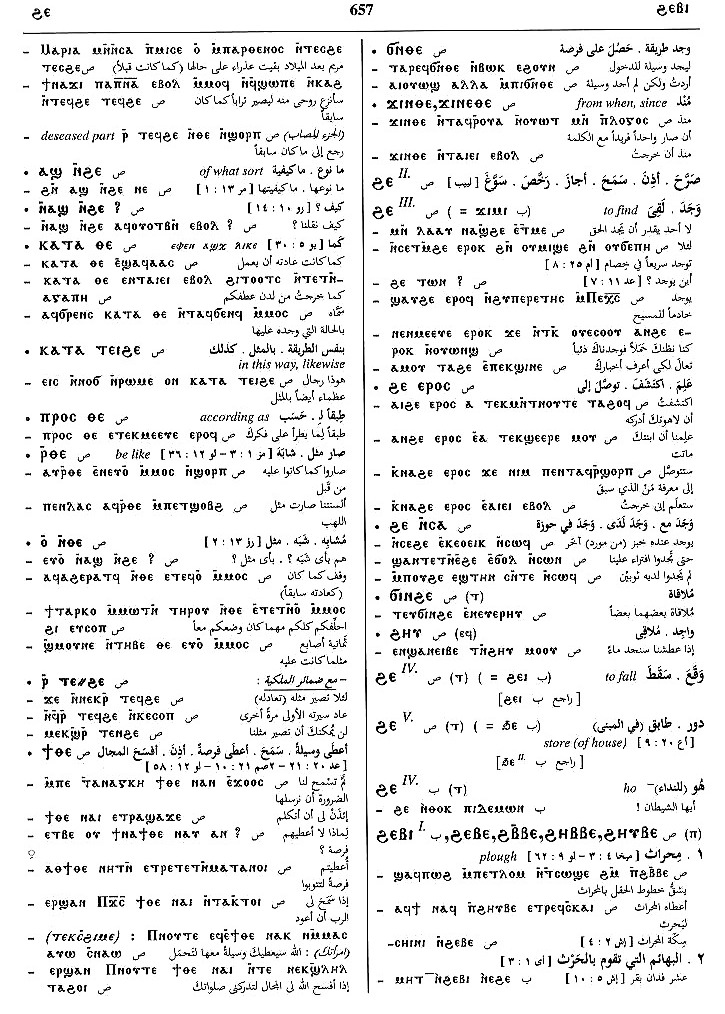 ϩⲉ 657 ϩⲉⲃⲓ
– Ⲙⲁⲣⲓⲁ ⲙⲛ̄ⲛⲥⲁ ⲡ̄ⲙⲓⲥⲉ ⲟ̄ ⲙ̄ⲡⲁⲣⲑⲉⲛⲟⲥ ⲛ̄ⲧⲉⲥϩⲉ
ⲧⲉⲥϩⲉ ص مريم بعد الميلاد بقيت عذراء على حالها (كما كانت قبلاً)
– ϯⲛⲁϫⲓ ⲡⲁⲡⲛ̄ⲁ ⲉⲃⲟⲗ ⲙ̄ⲙⲟϥ ⲛ̄ϥϣⲱⲡⲉ ⲛ̄ⲕⲁϩ
ⲛ̄ⲧⲉϥϩⲉ ⲧⲉϥϩⲉ ص سأنزع روحي منه ليصير تراباً كما كان
سابقاً
– deceased part ⲣ̄ ⲧⲉϥϩⲉ ⲛ̄ⲑⲉ ⲛ̄ϣⲟⲣⲡ ص (الجزء المصاب)
رجع إلى ما كان سابقاً
• ⲁϣ ⲛ̄ϩⲉ ص of what sort ما نوع . ما كيفية
– ϩⲛ̄ ⲁϣ ⲛ̄ϩⲉ ⲛⲉ ص ما نوعها . ما كيفيتها [مر ١٣ : ١]
• ⲛ̄ⲁϣ ⲛ̄ϩⲉ ? ص كيف ؟ [رو ١٠ : ١٤]
– ⲛ̄ⲁϣ ⲛ̄ϩⲉ ⲁϥⲟⲧⲟⲧⲃⲛ̄ ⲉⲃⲟⲗ ? ص كيف نقلنا ؟
• ⲕⲁⲧⲁ ⲑⲉ ص كما [يو ٥ : ٣٠]
– ⲕⲁⲧⲁ ⲑⲉ ⲉ̄ϣⲁϥⲁⲁⲥ ص كما كانت عادته أن يعمل
– ⲕⲁⲧⲁ ⲑⲉ ⲉⲛⲧⲁⲓⲉⲓ ⲉⲃⲟⲗ ϩⲓⲧⲟⲟⲧⲥ ⲛ̄ⲧⲉⲧⲛ̄–
ⲁⲅⲁⲡⲏ ص كما خرجتُ من لدن عطفكم
– ⲁϥϭⲣⲉⲛⲥ ⲕⲁⲧⲁ ⲑⲉ ⲛ̄ⲧⲁϥϭⲛ̄ⲧⲥ ⲙ̄ⲙⲟⲥ ص
بالحالة التي وجده عليها
• ⲕⲁⲧⲁ ⲧⲉⲓϩⲉ ص بنفس الطريقة . بالمثل . كذلك
in this way, likewise
– ⲉⲓⲥ ⲛ̄ⲛⲟϭ ⲛ̄ⲣⲱⲙⲉ ⲟⲛ ⲕⲁⲧⲁ ⲧⲉⲓϩⲉ ص هوذا رجال
عظماء أيضاً بالمثل
• ⲡⲣⲟⲥ ⲑⲉ ص according as طبقاً لِـ . حَسَبَ
– ⲡⲣⲟⲥ ⲑⲉ ⲉⲧⲉⲕⲙⲉⲉⲧⲉ ⲉⲣⲟϥ ص طبقاً لما يطرأ على فكرك
• ⲣ̄ⲑⲉ ص be like صار مثل . شابَهَ [مز ٣ : ١ – لو ١٢ : ٣٦]
– ⲁⲧⲣ̄ⲑⲉ ⲉ̄ⲛⲉⲧⲟ̄ ⲙ̄ⲙⲟⲥ ⲛ̄ϣⲟⲣⲡ ص صاروا كما كانوا عليه
من قبل
– ⲡⲉⲛⲗⲁⲥ ⲁϥⲣ̄ⲑⲉ ⲙ̄ⲡⲉⲧϣⲟϭ ص ألسنتنا صارت مثل
اللهب
• ⲟ̄ ⲛ̄ⲑⲉ ص مُشابِه . شَبَه . مثل [رؤ ١٣ : ٢]
– ⲉⲧⲟ̄ ⲛ̄ⲁϣ ⲛ̄ϩⲉ ? ص هم بأي شبه ؟ . بأي مثل ؟
– ⲁϥⲁϩⲉⲣⲁⲧϥ ⲛ̄ⲑⲉ ⲉⲧⲉϥⲟ̄ ⲙ̄ⲙⲟⲥ ص وقف كما كان
(كعادته سابقاً)
– ϯⲧⲁⲣⲕⲟ ⲙ̄ⲙⲱⲧⲛ̄ ⲧⲏⲣⲟⲧ ⲛ̄ⲑⲉ ⲉ̄ⲧⲉⲧⲛ̄ⲟ̄ ⲙ̄ⲙⲟⲥ
ϩⲓ ⲟⲧⲥⲟⲡ ص احلّفكم كلكم مهما كان وضعكم معاً
– ϣ̄ⲙⲟⲧⲛⲉ ⲛ̄ⲧⲏⲃⲉ ⲑⲉ ⲉⲧⲟ̄ ⲙ̄ⲙⲟⲥ ص ثمانية أصابع
مثلما كانت عليه
• ⲣ̄ ⲧⲉ//ϩⲉ ص – مع ضمائر الملكية :
– ϫⲉ ⲛ̄ⲛⲉⲕⲣ̄ ⲧⲉϥϩⲉ ص لئلا تصير مثله (تعادله)
– ⲛ̄ϥⲣ̄ ⲧⲉϥϩⲉ ⲛ̄ⲕⲉⲥⲟⲡ ص عاد سيرته الأولى مرةً أخرى
– ⲙⲉⲕϣⲣ̄ ⲧⲉⲛϩⲉ ص لن يمكنك أن تصير مثلنا
• ϯⲑⲉ ص أعطى وسيلةً . سَمَحَ . أعطى فرصةً . أذِنَ . أفسح المجال
[عد ٢٠ : ٢١ – ٢صم ٢١ : ١٠ – لو ١٢ : ٥٨]
– ⲙ̄ⲡⲉ ⲧⲁⲛⲁⲅⲕⲏ ϯⲑⲉ ⲛⲁⲛ ⲉ̄ϫⲟⲟⲥ ص لم تسمح لنا
الضرورة أن نرسلها
– ϯⲑⲉ ⲛⲁⲓ ⲉⲧⲣⲁϣⲁϫⲉ ص إئذنْ لي أن أتكلم
– ⲉⲧⲃⲉ ⲟⲧ ϯⲛⲁϯⲑⲉ ⲛⲁⲧ ⲁⲛ ? ص لماذا لا أعطيهم
فرصة ؟
– ⲁⲟϯⲑⲉ ⲛⲏⲧⲛ̄ ⲉⲧⲣⲉⲧⲉⲧⲛ̄ⲙⲁⲧⲁⲛⲟⲓ ص أعطيتم
فرصةً لتتوبوا
– ⲉⲣϣⲁⲛ Ⲡϫ̄ⲥ ϯⲑⲉ ⲛⲁⲓ ⲛ̄ⲧⲁⲕⲧⲟⲓ ص إذا سمح لي
الرب أن أعود
– (ⲧⲉⲕⲥϩⲓⲙⲉ) : Ⲡⲛⲟⲧⲧⲉ ⲉϥⲉ̄ϯⲑⲉ ⲛⲁⲕ ⲛⲙ̄ⲙⲁⲥ
ⲁⲧⲱ ⲥⲛⲁϣⲱ ص (امرأتك) : الله سيعطيك وسيلةً معها لتتحمل
– ⲉⲣϣⲁⲛ Ⲡⲛⲟⲧⲧⲉ ϯⲑⲉ ⲛⲁⲓ ⲛ̄ⲧⲉ ⲛⲉⲕϣⲗⲏⲗ
ⲧⲁϩⲟⲓ ص إذا أفسح الله لي المجال لتدركني صلواتك
• ϭⲛ̄ⲑⲉ ص وجد طريقة . حَصُلَ على فرصة
– ⲧⲁⲣⲉϥϭⲛ̄ⲑⲉ ⲛ̄ⲃⲱⲕ ⲉϩⲟⲧⲛ ص ليجد وسيلة للدخول
– ⲁⲓⲟⲧⲱϣ ⲁⲗⲗⲁ ⲙ̄ⲡⲓϭⲛ̄ⲑⲉ ص أردتُ ولكن لم أجد وسيلة
• ϫⲓⲛⲑⲉ,ϫⲓⲛⲉⲑⲉ ص from when, since مُنْذُ
– ϫⲓⲛⲑⲉ ⲛ̄ⲧⲁϥⲣ̄ⲟⲧⲁ ⲛ̄ⲟⲧⲱⲧ ⲙⲛ̄ ⲡⲗⲟⲅⲟⲥ ص منذ
أن صار واحداً فريداً مع الكلمة
– ϫⲓⲛⲑⲉ ⲛ̄ⲧⲁⲓⲉⲓ ⲉⲃⲟⲗ ص منذ أن خرجتُ
ϩⲉ II. ص صَرَّحَ . أذِنَ . سَمَحَ . أجازَ . رَخَّصَ . سَوَّغَ [لبيب]
ϩⲉ III. ص (ب ϫⲓⲙⲓ =) to find وَجَدَ . لَقِىَ
– ⲙⲛ̄ ⲗⲁⲁⲧ ⲛⲁϣϩⲉ ⲉ̄ⲧⲙⲉ ص لا أحد يقدر أن يجد الحق
– ⲛ̄ⲥⲉⲧⲙ̄ϩⲉ ⲉⲣⲟⲕ ϩⲛ̄ ⲟⲧⲙⲓϣⲉ ϩⲛ̄ ⲟⲧϭⲉⲡⲏ ص لئلا
توجد سريعاً في خصام [أم ٢٥ : ٨]
– ϩⲉ ⲧⲱⲛ ? ص أين يوجد ؟ [عد ١١ : ٧]
– ϣⲁⲧϩⲉ ⲉⲣⲟϥ ⲛ̄ϩⲧⲡⲉⲣⲉⲧⲏⲥ ⲙ̄Ⲡⲉⲭ̄ⲥ ص يوجد
خادماً للمسيح
– ⲛⲉⲛⲙⲉⲉⲧⲉ ⲉⲣⲟⲕ ϫⲉ ⲛ̄ⲧⲕ̄ ⲟⲧⲉⲥⲟⲟⲧ ⲁⲛϩⲉ ⲉ–
ⲣⲟⲕ ⲛ̄ⲟⲧⲱⲛϣ ص كنا نظنك حَمَلاً فوجدناك ذئباً
– ⲁⲙⲟⲧ ⲧⲁϩⲉ ⲉ̄ⲡⲉⲕϣⲓⲛⲉ ص تعالَ لكي أعرف أخبارك
• ϩⲉ ⲉⲣⲟⲥ ص عَلِمَ . اكتَشَفَ . توصَّل إلى
– ⲁⲓϩⲉ ⲉⲣⲟⲥ ⲁ ⲧⲉⲕⲙⲛ̄ⲧⲛⲟⲧⲧⲉ ⲧⲁϩⲟϥ ص اكتشفتُ
أن لاهوتك أدركه
– ⲁⲛϩⲉ ⲉⲣⲟⲥ ⲉ̄ⲁ ⲧⲉⲕϣⲉⲉⲣⲉ ⲙⲟⲧ ص علمنا أن ابنتك
ماتت
– ⲕ̄ⲛⲁϩⲉ ⲉⲣⲟⲥ ϫⲉ ⲛⲓⲙ ⲡⲉⲛⲧⲁϥⲣ̄ϣⲟⲣⲡ ص ستتوصَّل
إلى معرفة مَنْ الذي سبق
– ⲕ̄ⲛⲁϩⲉ ⲉⲣⲟⲥ ⲉ̄ⲁⲓⲉⲓ ⲉⲃⲟⲗ ص ستعلم إني خرجتُ
• ϩⲉ ⲛ̄ⲥⲁ ص وَجَدَ مع . وَجَدَ لدى . وَجَدَ في حوزة
– ⲛ̄ⲥⲉϩⲉ ⲉ̄ⲕⲉⲟⲉⲓⲕ ⲛ̄ⲥⲱϥ ص يوجد عنده خبز (من مورد) آخر
– ϣⲁⲛⲧⲉⲧⲛ̄ϩⲉ ⲉ̄ϭⲟⲗ ⲛ̄ⲥⲱⲛ ص حتى تجدوا افتراء علينا
– ⲙ̄ⲡⲟⲧϩⲉ ⲉϣⲧⲏⲛ ⲥⲛ̄ⲧⲉ ⲛ̄ⲥⲱϥ ص لم يجدوا لديه ثوبين
• ϭⲓⲛϩⲉ ص (ⲧ) مُلاقاة
– ⲧⲉⲧϭⲓⲛϩⲉ ⲉ̄ⲛⲉⲧⲉⲣⲏⲧ ص مُلاقاة بعضهما بعضاً
• ϩⲏⲧ ص (eq) واجد . مُلاقى
– ⲉⲛϣⲁⲛⲉⲓⲃⲉ ⲧⲛ̄ϩⲏⲧ ⲙⲟⲟⲧ ص إذا عطشنا سنجد ماءً
ϩⲉ IV. ص (ⲧ) (ب ϩⲉⲓ =) to fall وَقَعَ . سَقَطَ
[راجع ب ϩⲉⲓ]
ϩⲉ V. ص (ⲧ) (ب ϧⲉ =) دور . طابق (في المبنى)
store (of house) [أع ٢٠ : ٩]
[راجع ب ϧⲉ II.]
ϩⲉ IV. ب (ⲧ) ho هُو (للنداء)
– ϩⲉ ⲛ̄ⲑⲟⲕ ⲡⲓⲇⲉⲙⲱⲛ ب أيها الشيطان !
ϩⲉⲃⲓ I. ب,ϩⲉⲃⲉ,ϩⲃ̄ⲃⲉ,ϩⲏⲃⲃⲉ,ϩⲏⲧⲃⲉ ص (ⲡ)
١ . مِحراث plough [ميخا ٤ : ٣ – لو ٩ : ٦٢]
– ϣⲁϥⲡⲱϩ ⲙ̄ⲡⲉⲧⲗⲟⲙ ⲛ̄ⲧⲥⲱϣⲉ ϩⲙ̄ ⲡϩⲉⲃⲃⲉ ص
يشق خطوط الحقل بالمحراث
– ⲁϥϯ ⲛⲁϥ ⲙ̄ⲡϩⲏⲧⲃⲉ ⲉⲧⲣⲉϥⲥⲕⲁⲓ ص أعطاه المحراث
ليحرث
–ⲥⲏⲓⲛⲓ ⲛ̄ϩⲉⲃⲉ ص سِكّة المحراث [إش ٢ : ٤]
٢ . البهائم التي تقوم بالحَرْث [أى ١ : ٣]
– ⲙⲏⲧ ⲛ̄ϩⲉⲃⲓ ⲛ̄ⲉϩⲉ ب عشر فدان بقر [إش ٥ : ١٠]